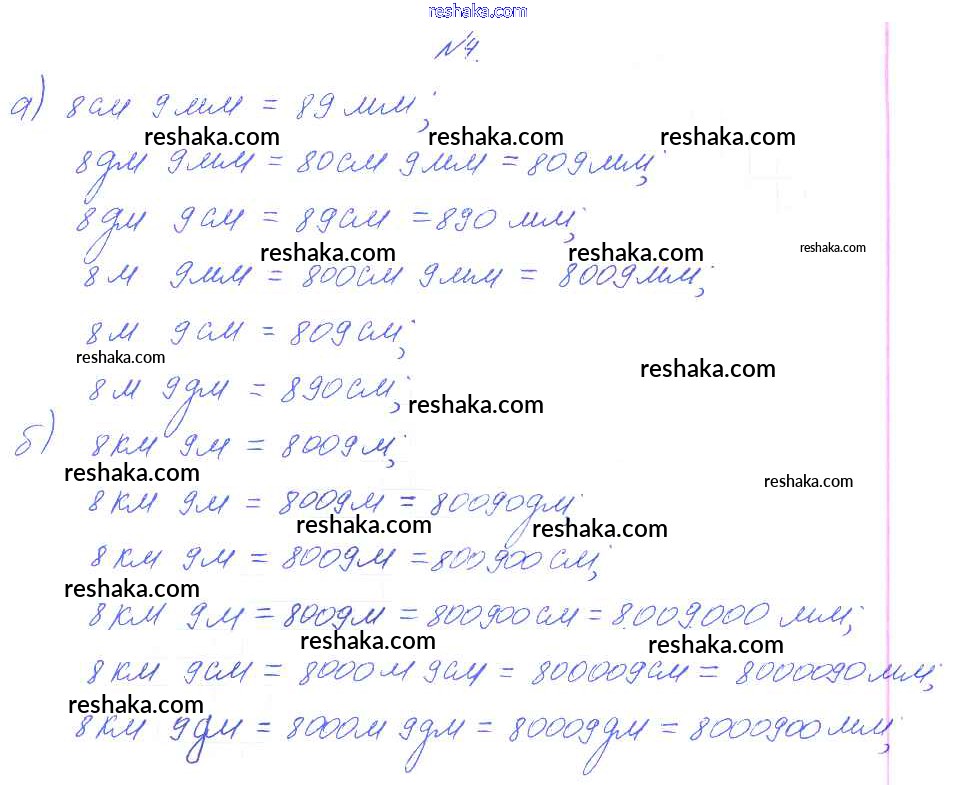 reshaka.com
№4.
а) 8см 9мм = 89мм;
reshaka.com reshaka.com reshaka.com
8дм 9мм = 80см 9мм = 809мм;
8дм 9см = 89см = 890 мм;
reshaka.com reshaka.com reshaka.com
8м 9мм = 800см 9мм = 8009мм;
8м 9см = 809см;
reshaka.com reshaka.com
8м 9дм = 890см;
reshaka.com
б) 8км 9м = 8009м;
reshaka.com reshaka.com
8км 9м = 8009м = 80090дм;
reshaka.com reshaka.com
8км 9м = 8009м = 800900см;
reshaka.com
8км 9м = 8009м = 800900см = 8009000 мм;
reshaka.com reshaka.com
8км 9см = 8000м 9см = 800009см = 8000090мм;
reshaka.com
8км 9дм = 8000м 9дм = 80009дм = 8000900мм;